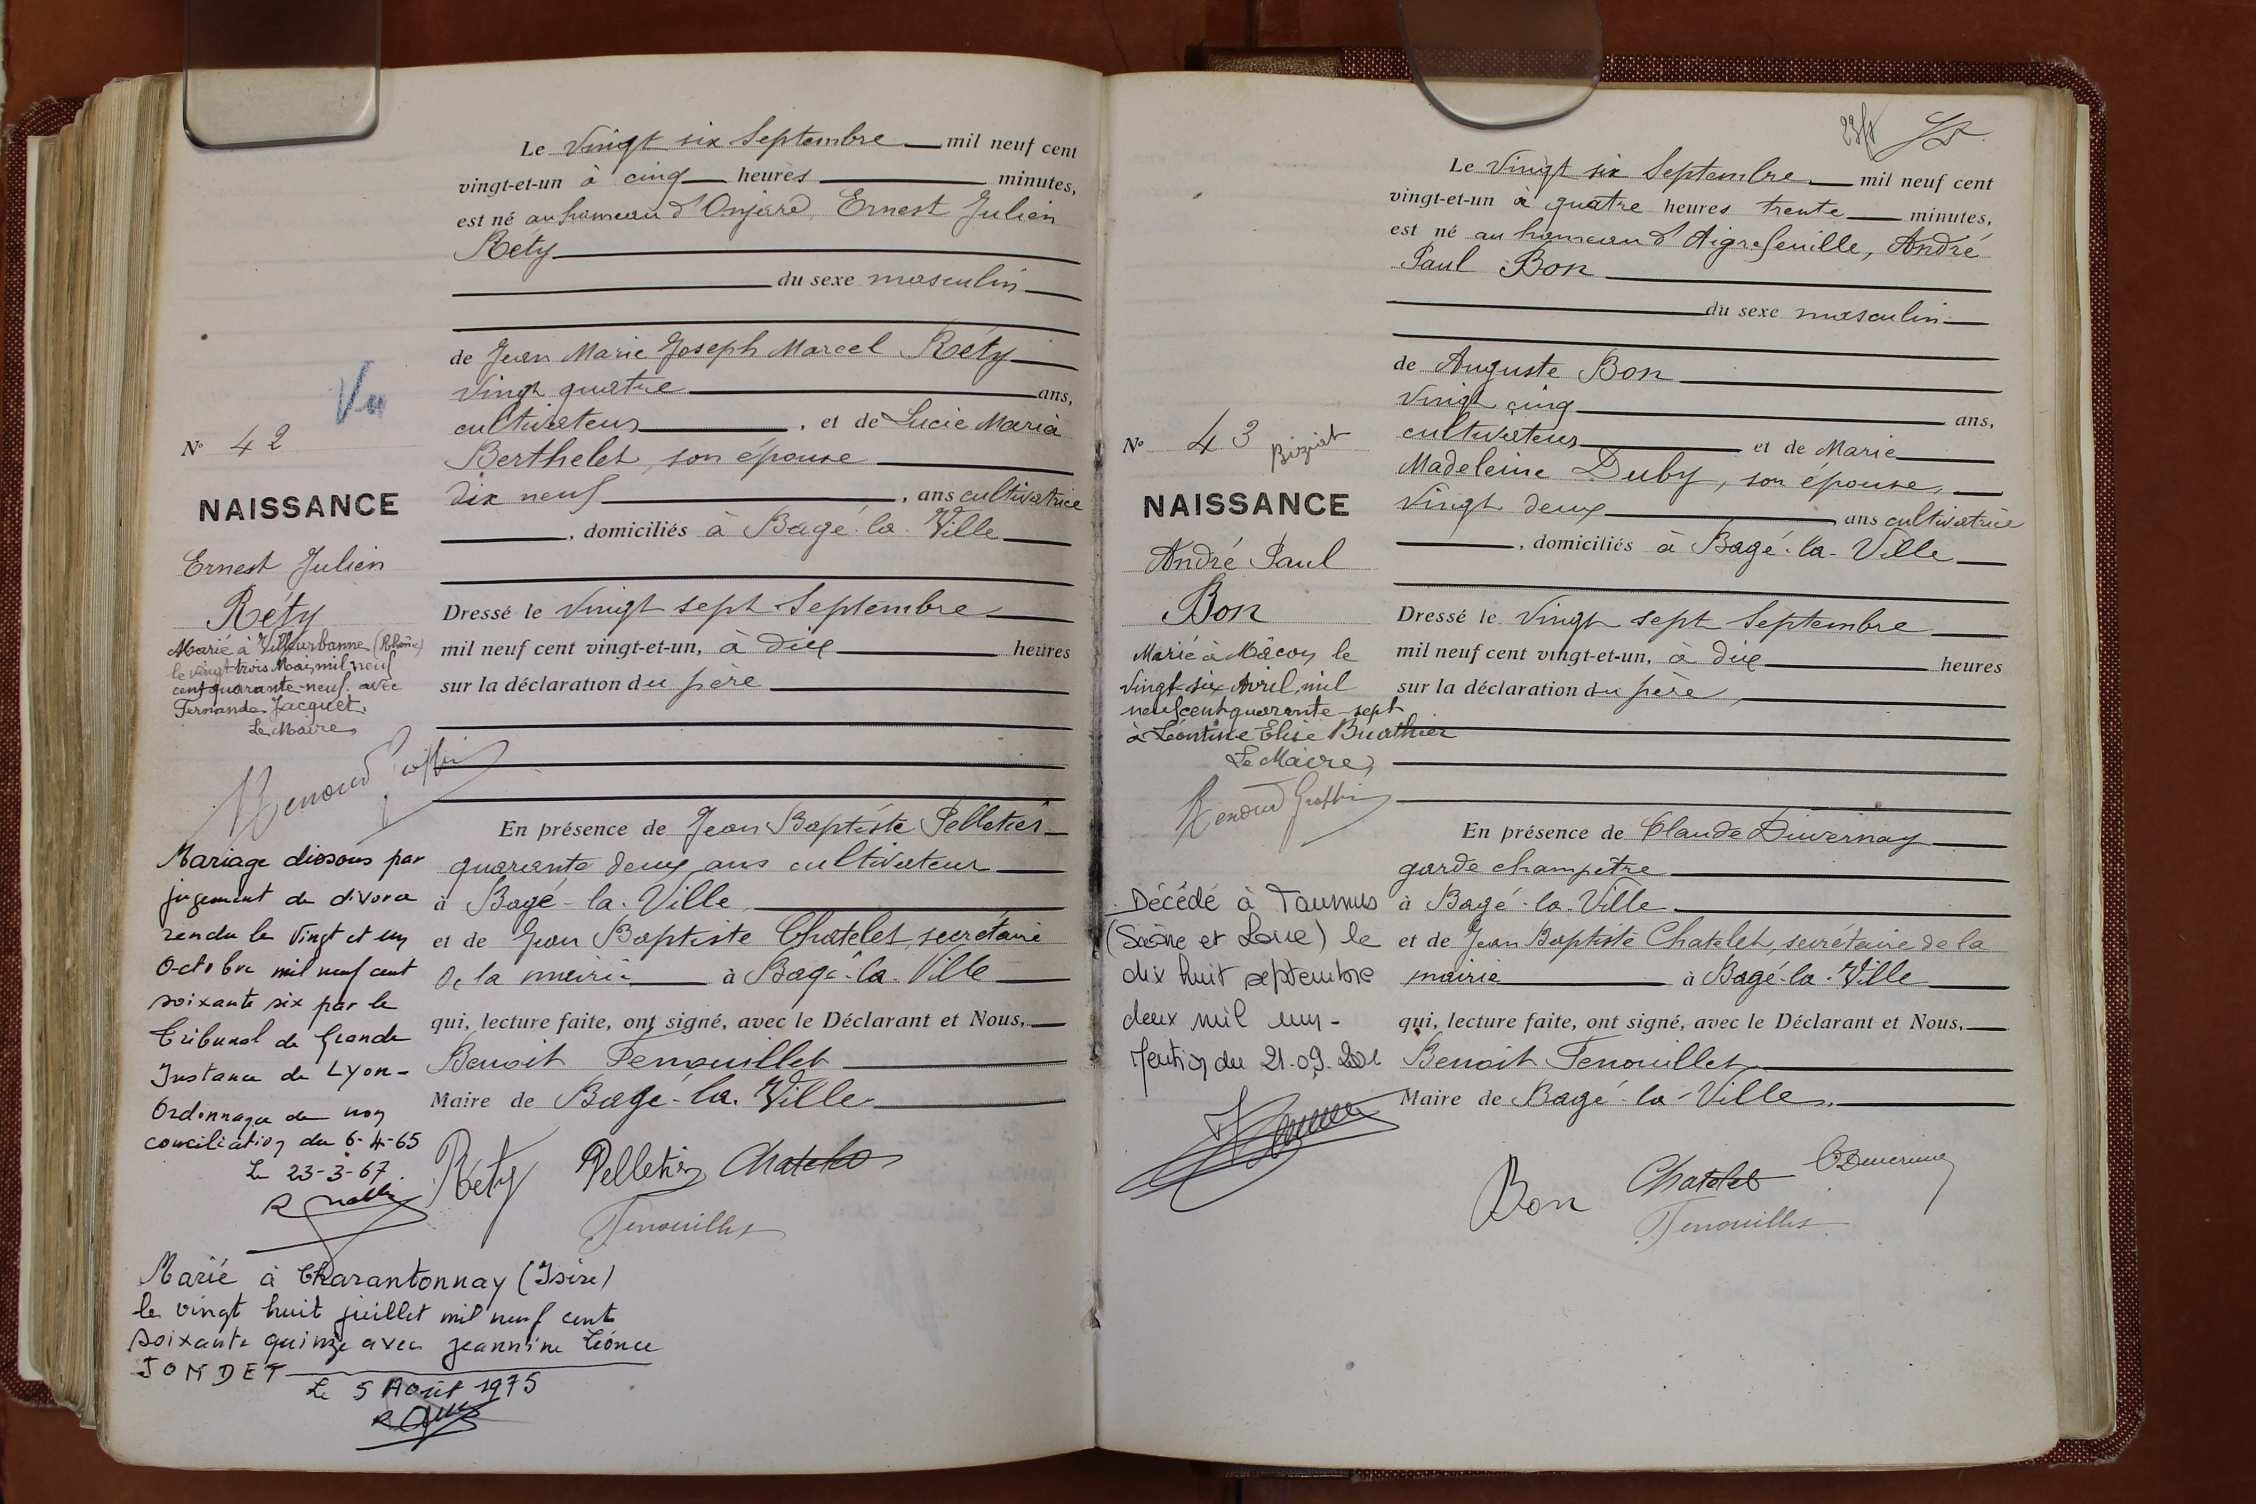 Le vingt six Septembre mil neuf cent
vingt-et-un à cinq heures minutes,
est né au hameau d'Onjard, Ernest Julien
Réty
du sexe masculin
de Jean Marie Joseph Marcel Réty
vingt quatre ans,
cultivateur, et de Lucie Maria
Berthelet, son épouse
dix neuf, ans cultivatrice
, domiciliés à Bagé-la-Ville
Dressé le vingt sept Septembre
mil neuf cent vingt-et-un, à dix heures
sur la déclaration du père
En présence de Jean Baptiste Pelletier
quarante deux ans cultivateur
à Bagé-la-Ville
et de Jean Baptiste Chatelet secrétaire
de la mairie à Bagé-la-Ville
qui, lecture faite, ont signé, avec le Déclarant et Nous,
Benoit Fenouillet
Maire de Bagé-la-Ville
Réty Pelletier Chatelet
Fenouillet
Vu
N° 42
NAISSANCE
Ernest Julien
Réty
Marié à Villeurbanne (Rhône)
le vingt trois Mai, mil neuf
cent quarante-neuf avec
Fernande Jacquet.
Le Maire,
Mariage dissous par
jugement de divorce
rendu le vingt et un
octobre mil neuf cent
soixante six par le
Tribunal de Grande
Instance de Lyon-
Ordonnance de non
conciliation du 6-4-65
Le 23-3-67.
Marié à Charantonnay (Isère)
le vingt huit juillet mil neuf cent
soixante quinze avec Jeannine Léonce
JOMDET
Le 5 Août 1975
Le vingt six Septembre mil neuf cent
vingt-et-un à quatre heures trente minutes,
est né au hameau d'Aigrefeuille, André
Paul Bon
du sexe masculin
de Auguste Bon
vingt cinq ans,
cultivateur et de Marie
Madeleine Duby, son épouse,
vingt deux ans cultivatrice
, domiciliés à Bagé-la-Ville
Dressé le vingt sept Septembre
mil neuf cent vingt-et-un, à dix heures
sur la déclaration du père,
En présence de Claude Duvernay
garde champêtre
à Bagé-la-Ville
et de Jean Baptiste Chatelet, secrétaire de la
mairie à Bagé-la-Ville
qui, lecture faite, ont signé, avec le Déclarant et Nous,
Benoit Fenouillet
Maire de Bagé-la-Ville,
Bon Chatelet CDuvernay
Fenouillet
N° 43
Biziat
NAISSANCE
André Paul
Bon
Marié à Mâcon le
vingt-six Avril, mil
neuf cent quarante-sept
à Léontine Elise Buathier
Le Maire,
Renoud Graffin
Décédé à Tournus
(Saône et Loire) le
dix huit septembre
deux mil un-
Mention du 21.09.2001